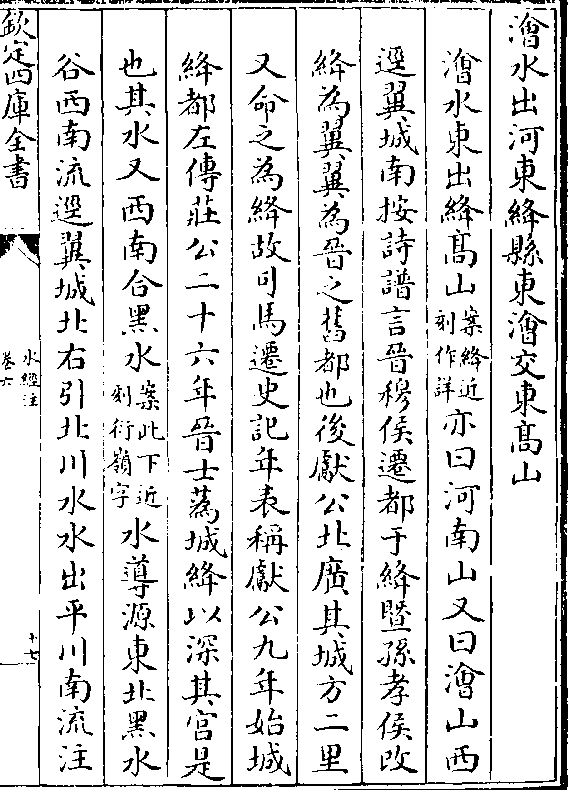 澮水出河東絳縣東澮交東髙山
澮水東出絳髙山案絳近刻作詳亦曰河南山又曰澮山西
逕翼城南按詩譜言晉穆侯遷都于絳暨孫孝侯改
絳為翼翼為晉之舊都也後獻公北廣其城方二里
又命之為絳故司馬遷史記年表稱獻公九年始城
絳都左傳莊公二十六年晉士蒍城絳以深其宫是
也其水又西南合黑水案此下近刻衍嶺字水導源東北黑水
谷西南流逕翼城北右引北川水水出平川南流注
欽定四庫全書
水經注
卷六
十七